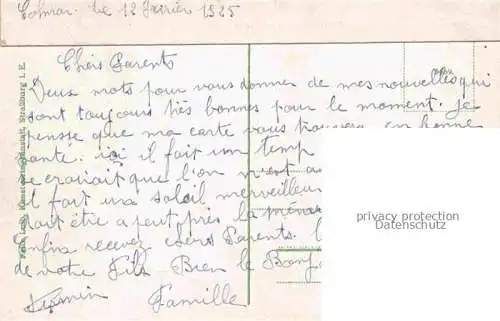 Colmar. le 12 Janvier 1925
Chers Parents
Deux mots pour vous donner de mes nouvelles qui
sont toujours très bonnes pour le moment. je
pensse que ma carte vous trouvera en bonne
santé. ici il fait un temp
se croirait que l'on n'est a
il fait un soleil merveilleu
doit être a peut près la
Enfin recevez chers Parents.
de votre Fils Bien le Bonj
Famille
privacy protection
Datenschutz
Straßburg i. E.